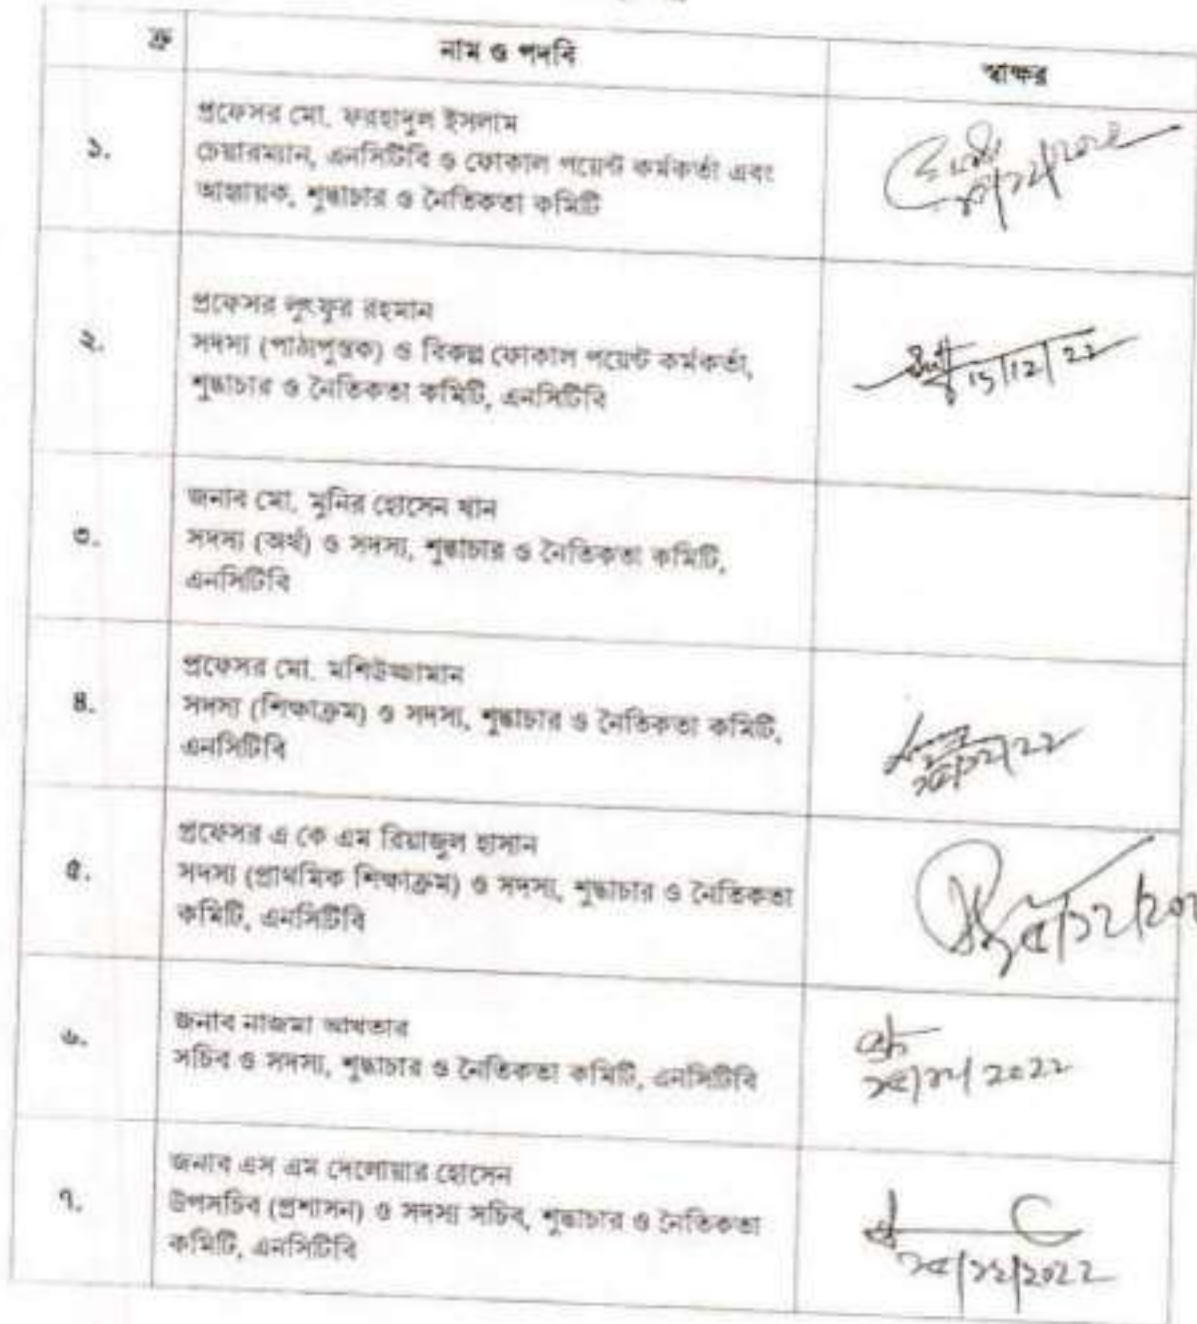 ক্র নাম ও পদবি স্বাক্ষর
১. প্রফেসর মো. ফরহাদুল ইসলাম
চেয়ারম্যান, এনসিটিবি ও ফোকাল পয়েন্ট কর্মকর্তা এবং
আহ্বায়ক, শুদ্ধাচার ও নৈতিকতা কমিটি
২. প্রফেসর লুৎফুর রহমান
সদস্য (পাঠ্যপুস্তক) ও বিকল্প ফোকাল পয়েন্ট কর্মকর্তা,
শুদ্ধাচার ও নৈতিকতা কমিটি, এনসিটিবি
15/12/22
৩. জনাব মো. মুনির হোসেন খান
সদস্য (অর্থ) ও সদস্য, শুদ্ধাচার ও নৈতিকতা কমিটি,
এনসিটিবি
৪. প্রফেসর মো. মশিউজ্জামান
সদস্য (শিক্ষাক্রম) ও সদস্য, শুদ্ধাচার ও নৈতিকতা কমিটি,
এনসিটিবি
১৫/১২/২২
৫. প্রফেসর এ কে এম রিয়াজুল হাসান
সদস্য (প্রাথমিক শিক্ষাক্রম) ও সদস্য, শুদ্ধাচার ও নৈতিকতা
কমিটি, এনসিটিবি
৬. জনাব নাজমা আখতার
সচিব ও সদস্য, শুদ্ধাচার ও নৈতিকতা কমিটি, এনসিটিবি
১৫/১২/২০২২
৭. জনাব এস এম দেলোয়ার হোসেন
উপসচিব (প্রশাসন) ও সদস্য সচিব, শুদ্ধাচার ও নৈতিকতা
কমিটি, এনসিটিবি
১৫/১২/২০২২